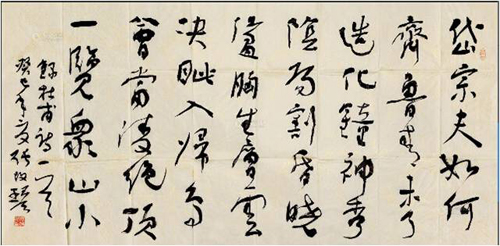 岱宗夫如何
齊魯青未了
造化鐘神秀
陰陽割昏曉
盪胸生曾雲
決眦入歸鳥
會當凌絕頂
一覽眾山小
錄杜甫詩一首
癸巳年夏張改琴